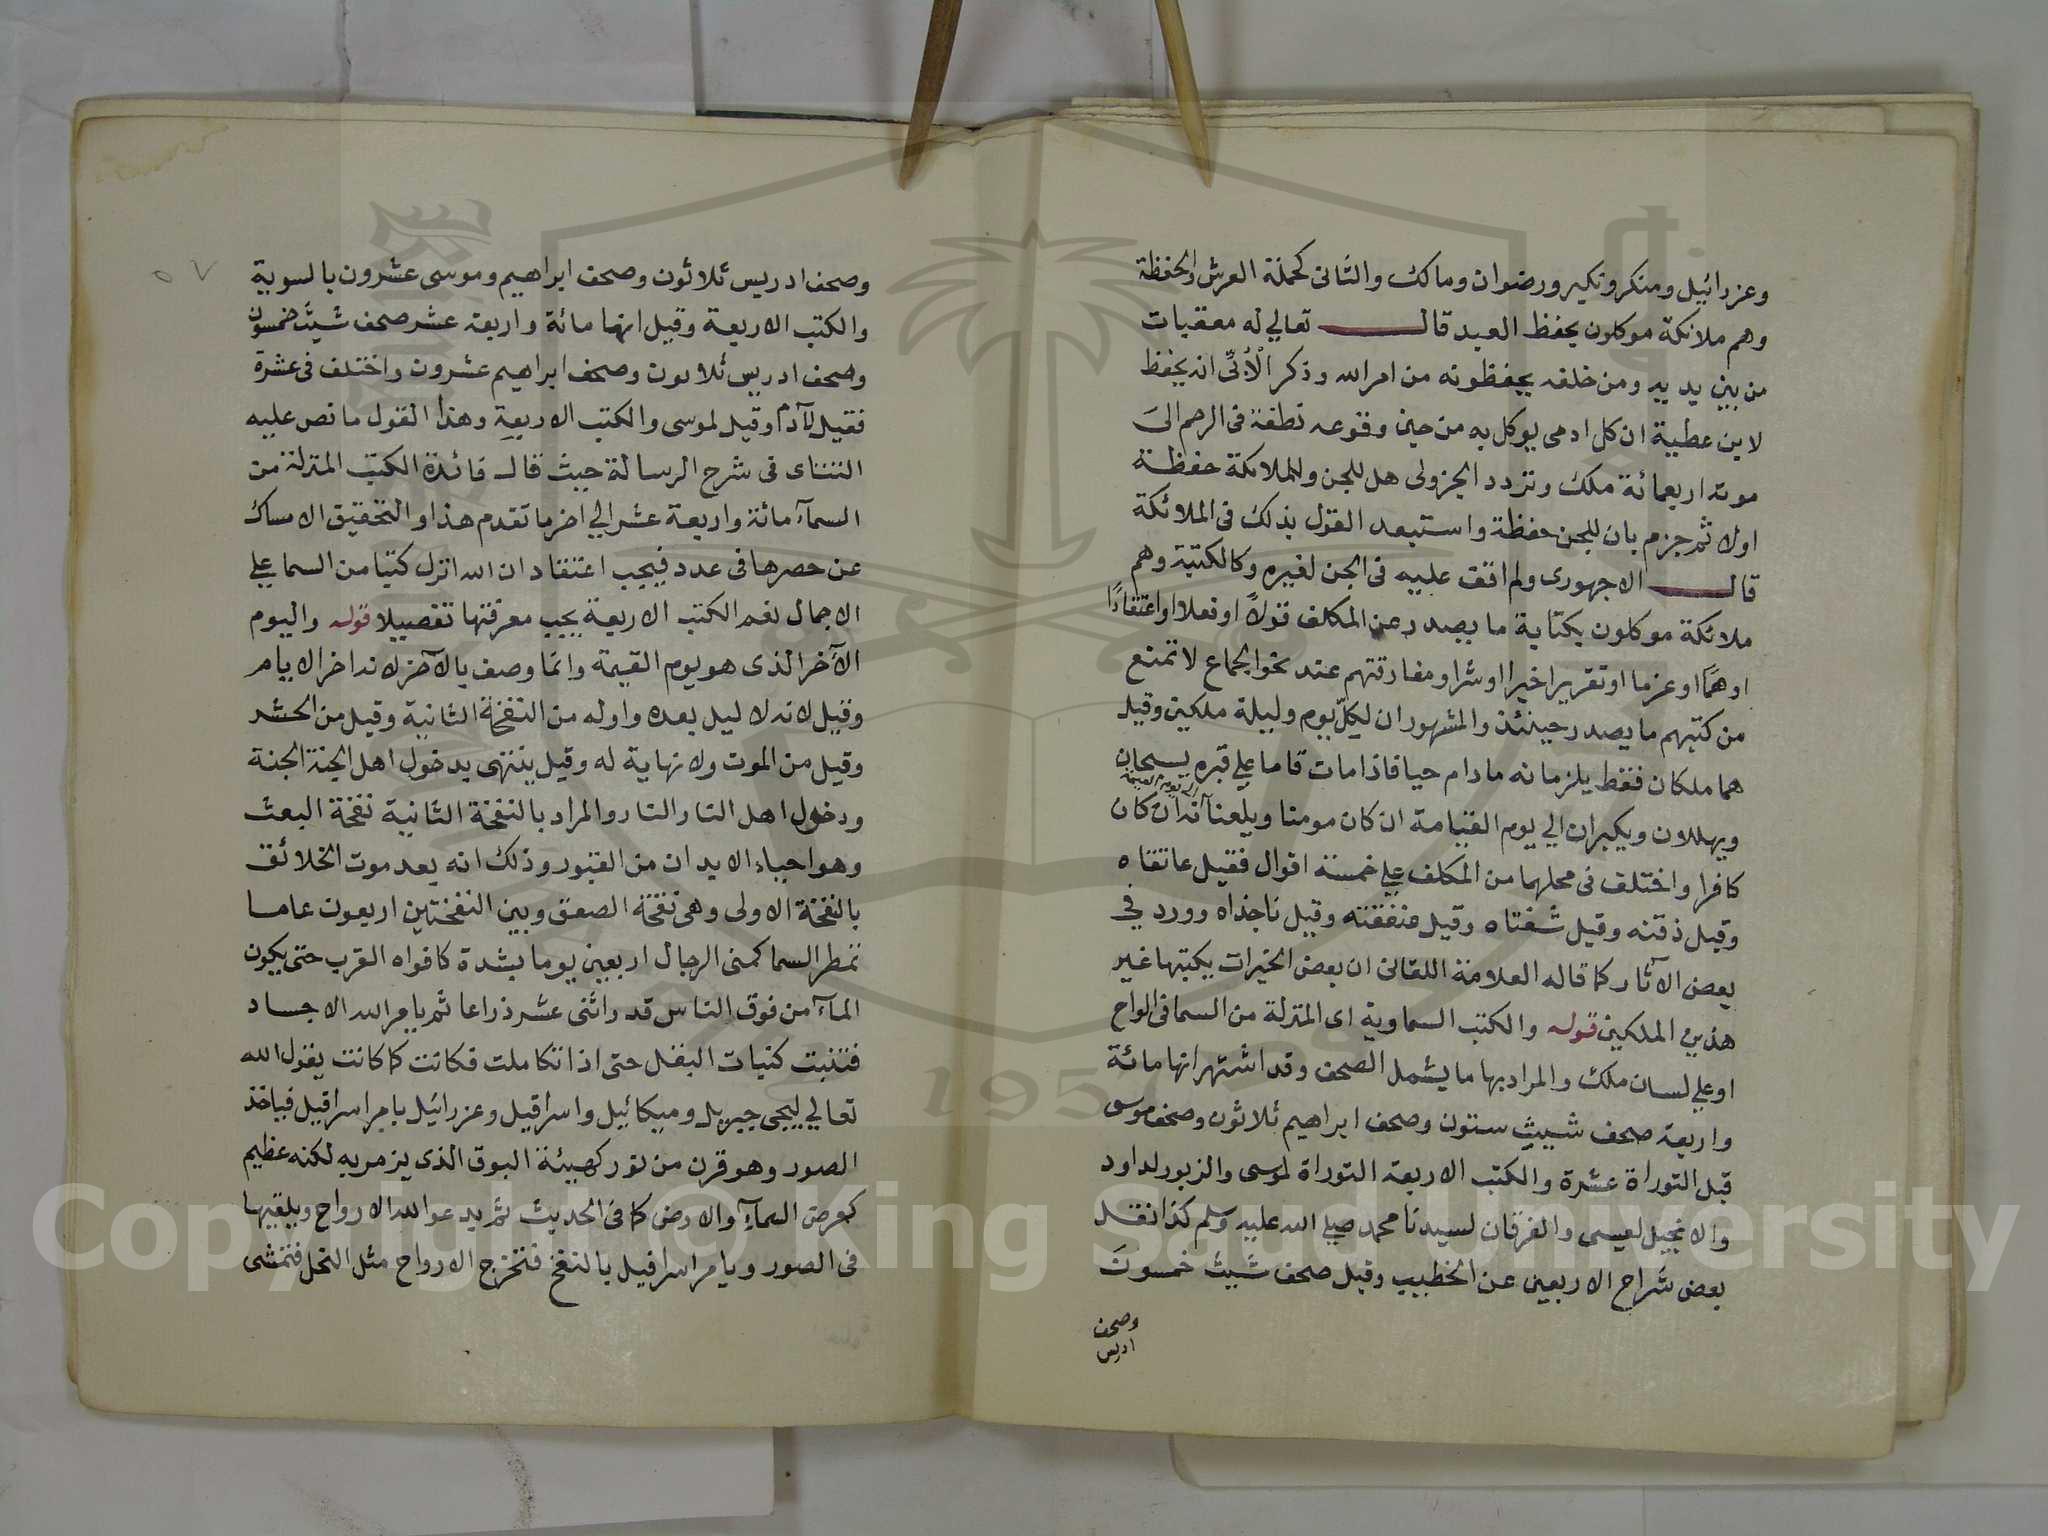 وعزرائيل ومنكر ونكير ورضوان ومالك والثانى كحملة العرش والحفظة
وهم ملائكة موكلون بحفظ العبد قال تعالي له معقبات
من بين يديه ومن خلفه يحفظونه من امر الله وذكر الأبّى انه يحفظ
لابن عطية ان كل ادمى يوكل به من حين وقوعه نطفة فى الرحم الى
موته اربعمائة ملك وتردد الجزولى هل للجن والملائكة حفظة
اولا ثم جزم بان للجن حفظة واستبعد القول بذلك فى الملائكة
قال الاجهورى ولم اقف عليه فى الجن لغيره وكالكتبة وهم
ملائكة موكلون بكتابة ما يصدر عن المكلف قولاً او فعلا او اعتقادًا
او همًا او عزما او تقريرا خيرا او شرا ومفارقتهم عند نحو الجماع لا تمنع
من كتبهم ما يصدر حينئذ والمشهور ان لكل يوم وليلة ملكين وقيل
هما ملكان فقط يلزمانه ما دام حيا فاذا مات قاما علي قبره يسبحان
ويهللان ويكبران الي يوم القيامة ان كان مومنا ويلعنانه الى يوم القيمة ان كان
كافرا واختلف فى محلهما من المكلف علي خمسة اقوال فقيل عاتقاه
وقيل ذقنه وقيل شفتاه وقيل عنفقته وقيل ناجذاه وورد في
بعض الآثار كما قاله العلامة اللقانى ان بعض الخيرات يكتبها غير
هذين الملكين قوله والكتب السماوية اى المنزلة من السما فى الواح
او علي لسان ملك والمراد بها ما يشمل الصحف وقد اشتهر انها مائة
واربعة صحف شيث ستون وصحف ابراهيم ثلاثون وصحف موسى
قبل التوراة عشرة والكتب الاربعة التوراة لموسى والزبور لداود
والانجيل لعيسى والفرقان لسيدنا محمد صلي الله عليه وسلم كذا نقل
بعض شراح الاربعين عن الخطيب وقيل صحف شيث خمسون
وصحف
ادريس
٥٧
وصحف ادريس ثلاثون وصحف ابراهيم وموسى عشرون بالسوية
والكتب الاربعة وقيل انها مائة واربعة عشر صحف شيث خمسون
وصحف ادريس ثلاثون وصحف ابراهيم عشرون واختلف فى عشرة
فقيل لآدم وقيل لموسى والكتب الاربعة وهذا القول ما نص عليه
التتاى فى شرح الرسالة حيث قال فائدة الكتب المنزلة من
السمآء مائة واربعة عشر الي اخر ما تقدم هذا والتحقيق الامساك
عن حصرها فى عدد فيجب اعتقاد ان الله انزل كتبا من السما علي
الاجمال نعم الكتب الاربعة يجب معرفتها تفصيلا قوله واليوم
الآخر الذى هو يوم القيمة وانما وصف بالآخر لانه اخر الايام
وقيل لانه لا ليل بعده واوله من النفخة الثانية وقيل من الحشر
وقيل من الموت ولا نهاية له وقيل ينتهى بدخول اهل الجنة الجنة
ودخول اهل النار النار والمراد بالنفخة الثانية نفخة البعث
وهو احياء الابدان من القبور وذلك انه بعد موت الخلائق
بالنفخة الاولى وهى نفخة الصعق وبين النفختين اربعون عاما
تمطر السما كمنى الرجال اربعين يوما بشدة كافواه القرب حتى يكون
المآء من فوق الناس قدر اثنى عشر ذراعا ثم يامر الله الاجساد
فتنبت كنبات البقل حتى اذا تكاملت فكانت كما كانت يقول الله
تعالي ليحى جبريل وميكائيل واسرافيل وعزرائيل يامر اسرافيل فياخذ
الصور وهو قرن من نور كهيئة البوق الذى يزمر به لكنه عظيم
كعرض السمآء والارض كما فى الحديث ثم يدعو الله الارواح ويلقيها
فى الصور ويامر اسرافيل بالنفخ فتخرج الارواح مثل النحل فتمشى
Copyright © King Saud University
1957